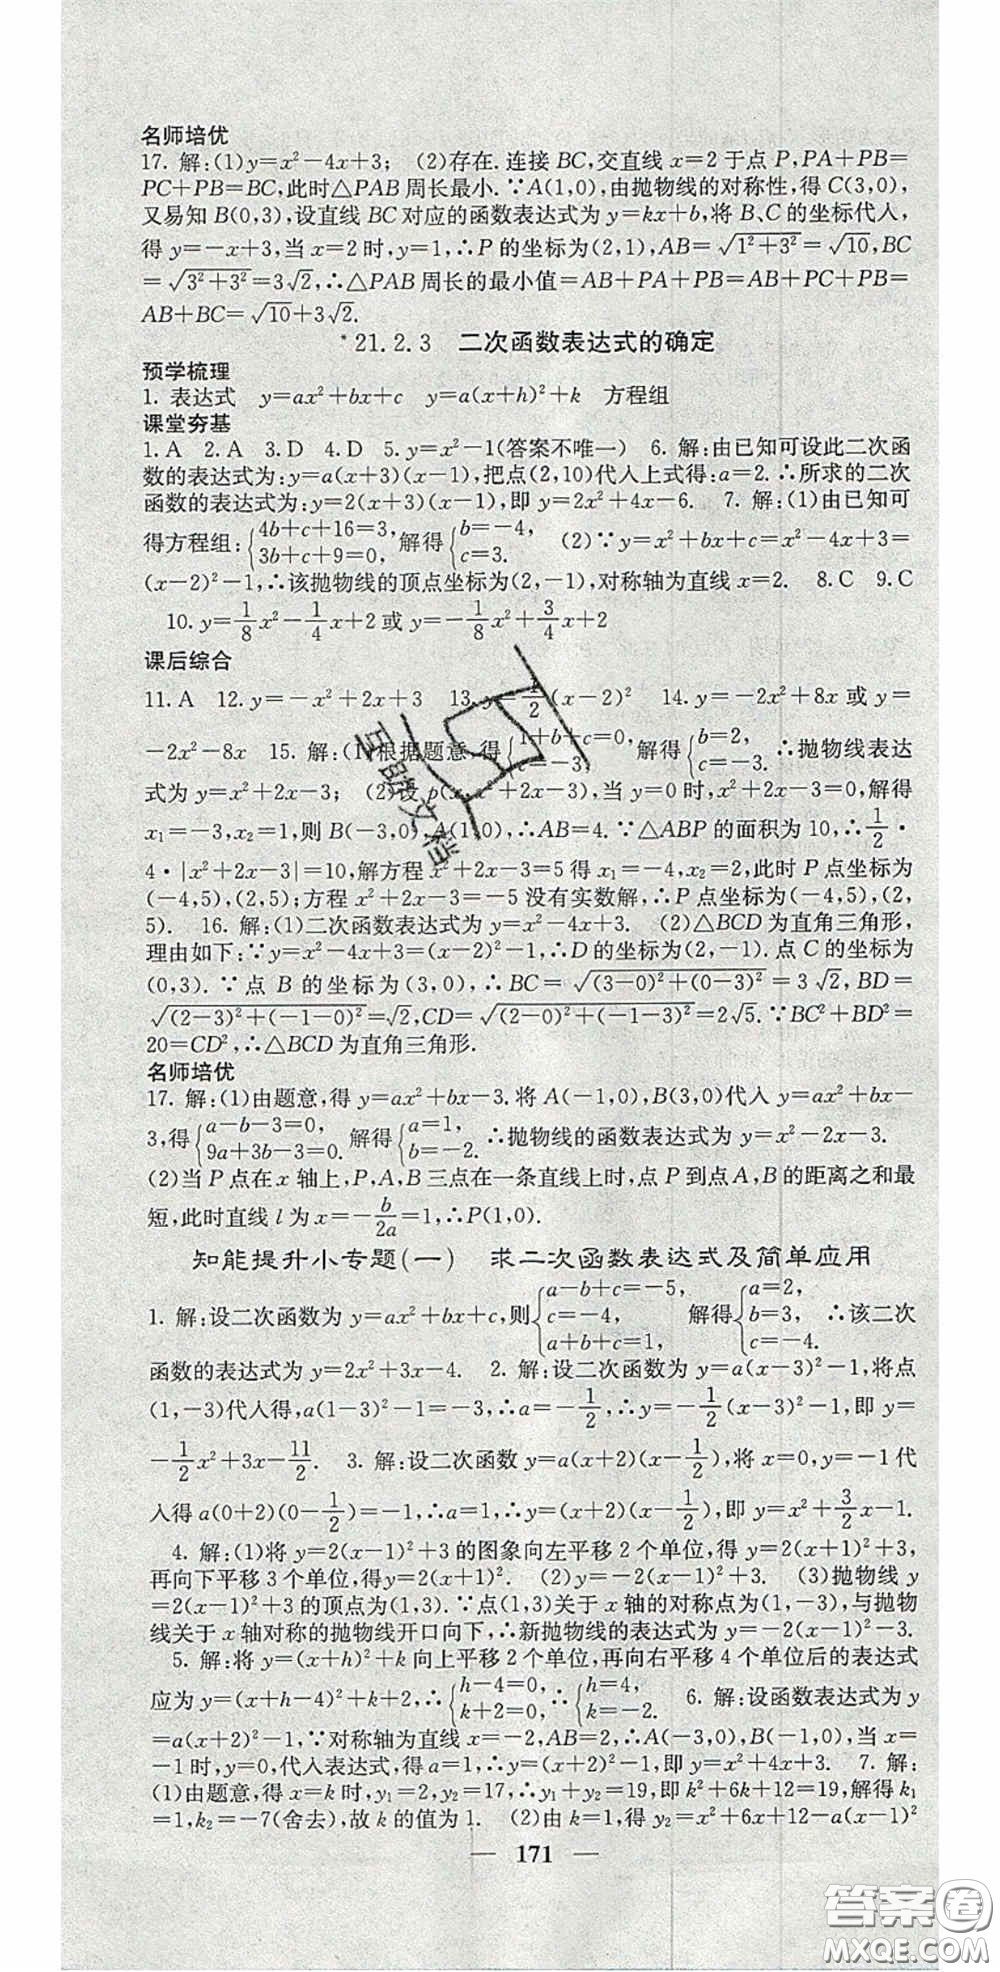 名师培优
17. 解:(1)y=x²-4x+3; (2)存在.连接 BC,交直线 x=2 于点 P,PA+PB=
PC+PB=BC,此时△PAB周长最小.∵A(1,0),由抛物线的对称性,得 C(3,0),
又易知 B(0,3),设直线 BC 对应的函数表达式为 y=kx+b,将 B、C 的坐标代人,
得 y=-x+3,当 x=2 时,y=1,∴P 的坐标为(2,1),AB=√(1²+3²)=√10,BC
=√(3²+3²)=3√2,∴△PAB 周长的最小值=AB+PA+PB=AB+PC+PB=
AB+BC=√10+3√2.
*21.2.3 二次函数表达式的确定
预学梳理
1. 表达式 y=ax²+bx+c y=a(x+h)²+k 方程组
课堂夯基
1. A 2. A 3. D 4. D 5. y=x²-1(答案不唯一) 6. 解:由已知可设此二次函
数的表达式为:y=a(x+3)(x-1),把点(2,10)代入上式得:a=2.∴所求的二次
函数的表达式为:y=2(x+3)(x-1),即 y=2x²+4x-6. 7. 解:(1)由已知可
得方程组:{4b+c+16=3, 3b+c+9=0, 解得{b=-4, c=3. (2)∵y=x²+bx+c=x²-4x+3=
(x-2)²-1,∴该抛物线的顶点坐标为(2,-1),对称轴为直线 x=2. 8. C 9. C
10. y=1/8x²-1/4x+2 或 y=-1/8x²+3/4x+2
课后综合
11. A 12. y=-x²+2x+3 13. y=1/2(x-2)² 14. y=-2x²+8x 或 y=
-2x²-8x 15. 解:(1)根据题意,得{1+b+c=0, c=-3, 解得{b=2, c=-3. ∴抛物线表达
式为 y=x²+2x-3; (2)设 p(x,x²+2x-3),当 y=0 时,x²+2x-3=0,解得
x₁=-3,x₂=1,则 B(-3,0),A(1,0),∴AB=4.∵△ABP 的面积为 10,∴1/2·
4·|x²+2x-3|=10,解方程 x²+2x-3=5 得 x₁=-4,x₂=2,此时 P 点坐标为
(-4,5),(2,5);方程 x²+2x-3=-5 没有实数解,∴P 点坐标为(-4,5),(2,
5). 16. 解:(1)二次函数表达式为 y=x²-4x+3. (2)△BCD 为直角三角形,
理由如下:∵y=x²-4x+3=(x-2)²-1,∴D 的坐标为(2,-1).点 C 的坐标为
(0,3).∵点 B 的坐标为(3,0),∴BC=√((3-0)²+(0-3)²)=3√2,BD=
√((2-3)²+(-1-0)²)=√2,CD=√((2-0)²+(-1-3)²)=2√5.∵BC²+BD²=
20=CD²,∴△BCD 为直角三角形.
名师培优
17. 解:(1)由题意,得 y=ax²+bx-3.将 A(-1,0),B(3,0)代入 y=ax²+bx-
3,得{a-b-3=0, 9a+3b-3=0. 解得{a=1, b=-2. ∴抛物线的函数表达式为 y=x²-2x-3.
(2)当 P 点在 x 轴上,P,A,B 三点在一条直线上时,点 P 到点 A,B 的距离之和最
短,此时直线 l 为 x=-b/2a=1,∴P(1,0).
知能提升小专题(一) 求二次函数表达式及简单应用
1. 解:设二次函数为 y=ax²+bx+c,则{a-b+c=-5, c=-4, a+b+c=1, 解得{a=2, b=3, c=-4. ∴该二次
函数的表达式为 y=2x²+3x-4. 2. 解:设二次函数为 y=a(x-3)²-1,将点
(1,-3)代人得,a(1-3)²-1=-3,∴a=-1/2,∴y=-1/2(x-3)²-1,即 y=
-1/2x²+3x-11/2. 3. 解:设二次函数 y=a(x+2)(x-1/2),将 x=0,y=-1 代
人得 a(0+2)(0-1/2)=-1,∴a=1,∴y=(x+2)(x-1/2),即 y=x²+3/2x-1.
4. 解:(1)将 y=2(x-1)²+3 的图象向左平移 2 个单位,得 y=2(x+1)²+3,
再向下平移 3 个单位,得y=2(x+1)². (2)y=-2(x-1)²+3. (3)抛物线 y
=2(x-1)²+3 的顶点为(1,3).∵点(1,3)关于 x 轴的对称点为(1,-3),与抛物
线关于 x 轴对称的抛物线开口向下,∴新抛物线的表达式为 y=-2(x-1)²-3.
5. 解:将 y=(x+h)²+k 向上平移 2 个单位,再向右平移 4 个单位后的表达式
应为 y=(x+h-4)²+k+2,∴{h-4=0, k+2=0, ∴{h=4, k=-2. 6. 解:设函数表达式为 y
=a(x+2)²-1,∵对称轴为直线 x=-2,AB=2,∴A(-3,0),B(-1,0),当 x=
-1 时,y=0,代人表达式,得 a=1,∴y=(x+2)²-1,即 y=x²+4x+3. 7. 解:
(1)由题意,得 x=k 时,y₁=2,y₂=17,∴y₁+y₂=19,即 k²+6k+12=19,解得 k₁
=1,k₂=-7(舍去),故 k 的值为 1. (2)由 k=1,得 y₂=x²+6x+12-a(x-1)²
— 171 —
答案圈
MXQE.COM